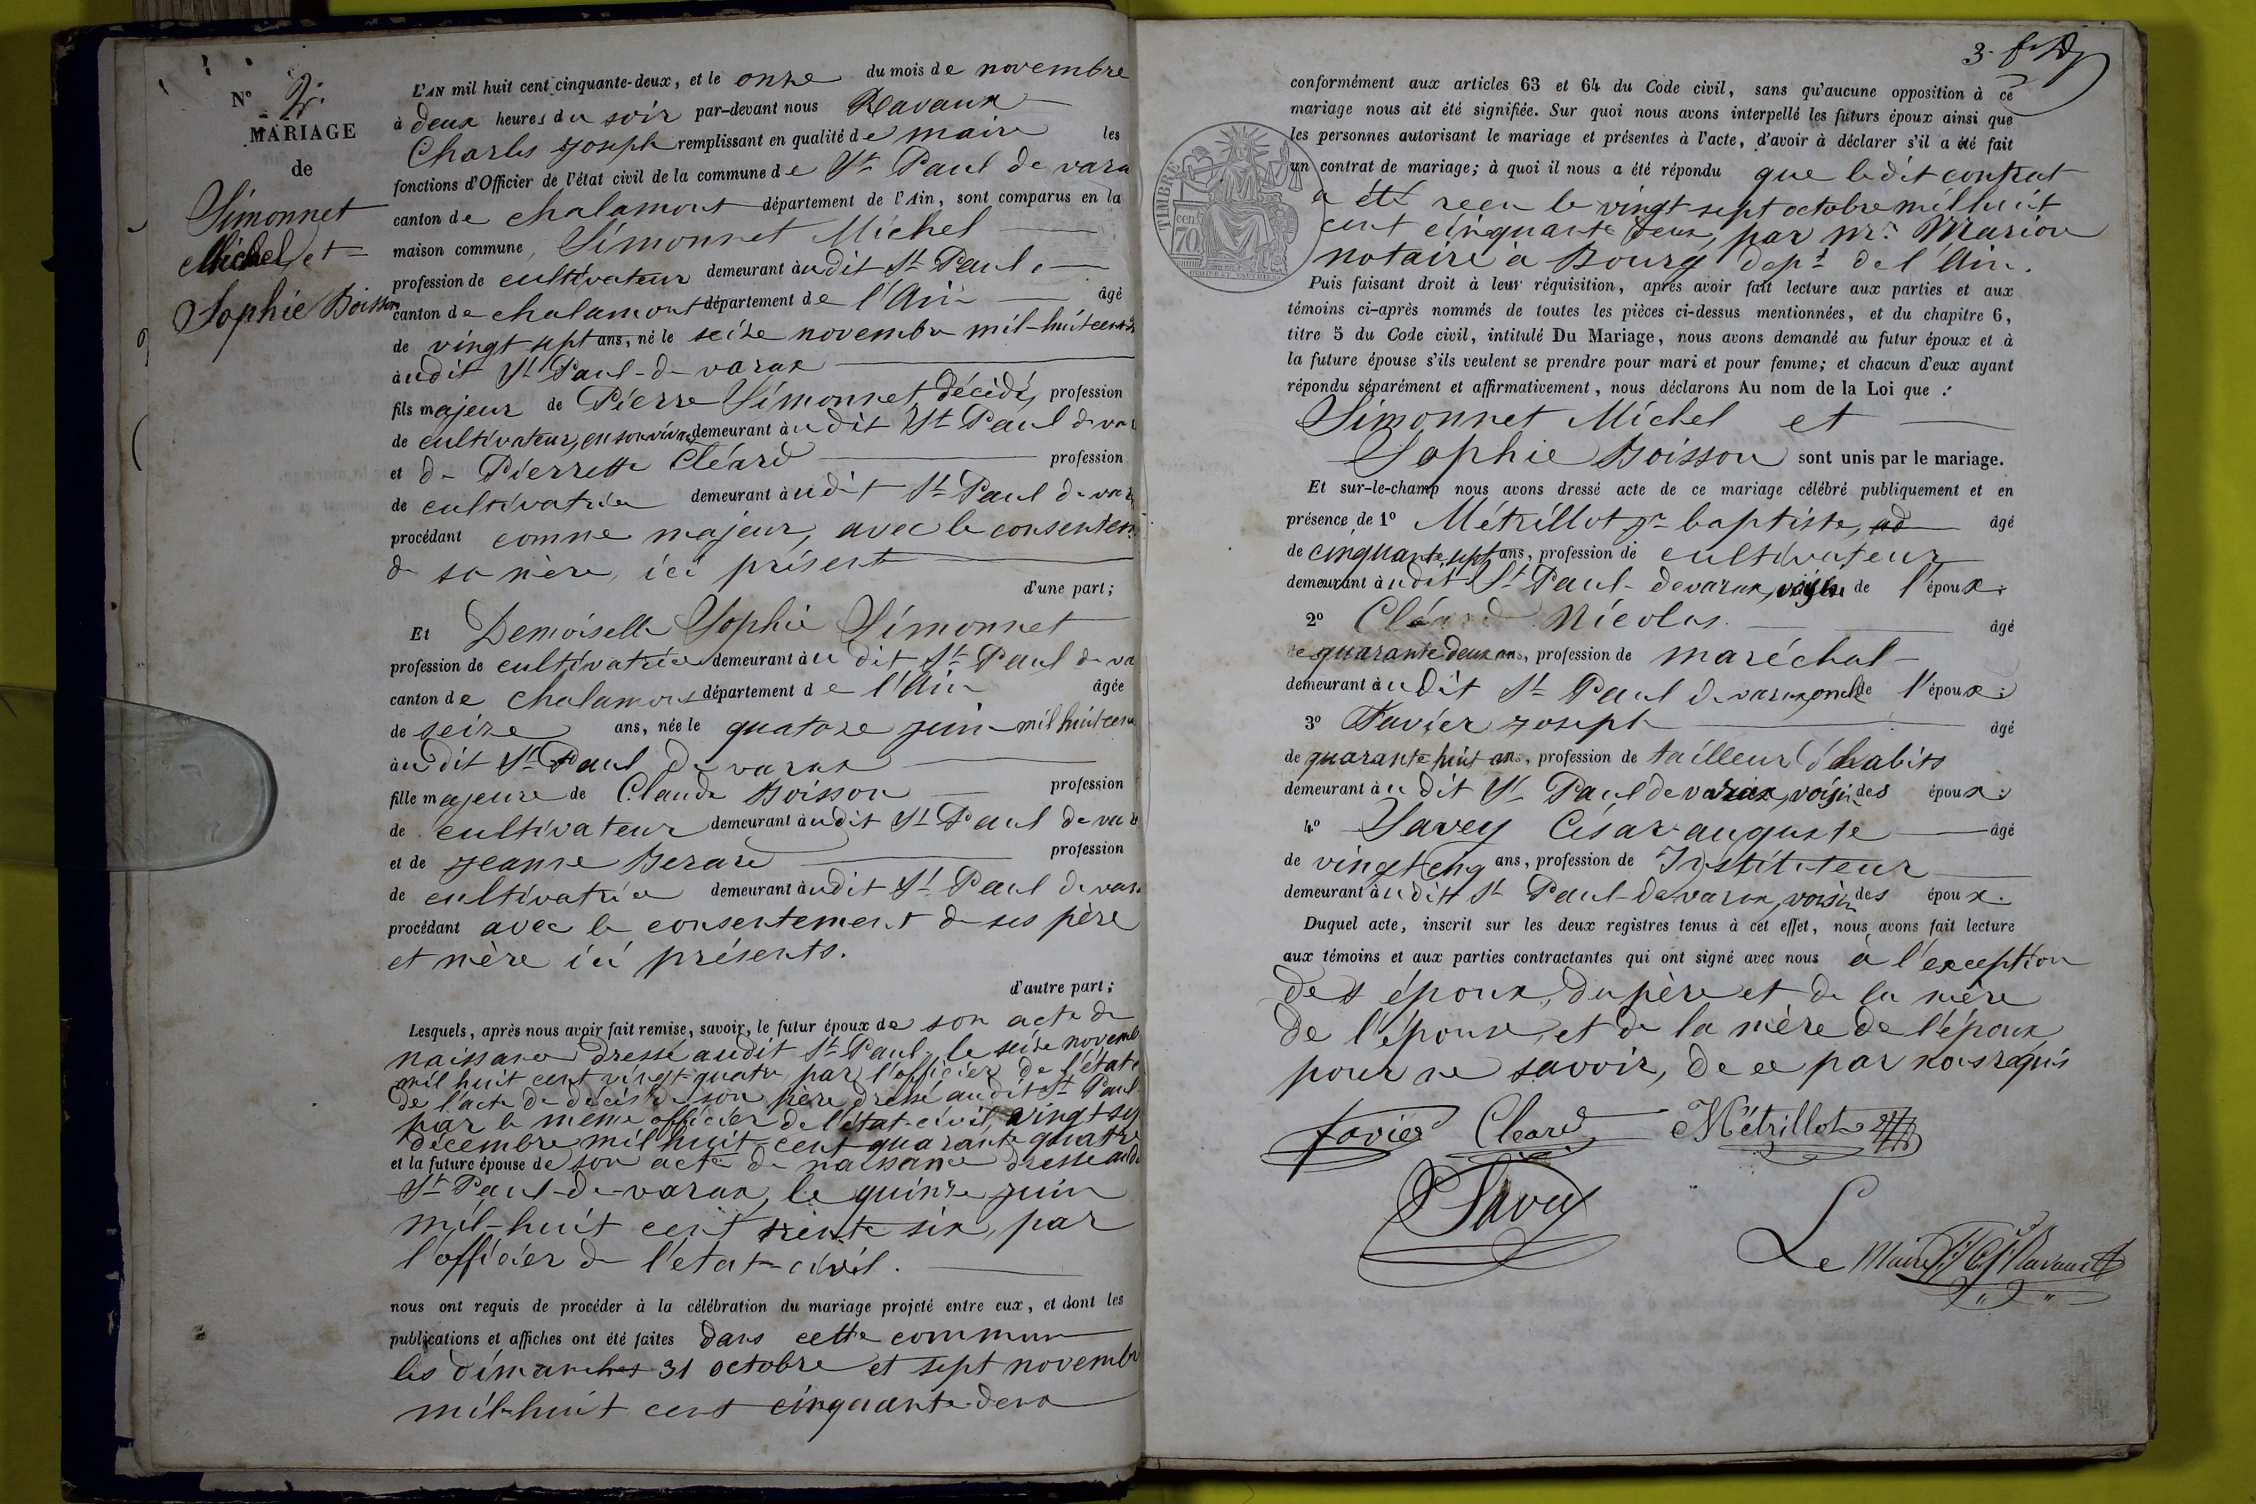 N° 2.
MARIAGE
de
Simonnet
Michel et
Sophie Boisson
L'AN mil huit cent cinquante-deux, et le onze du mois de novembre
à deux heures du soir par-devant nous Ravaux
Charles Joseph remplissant en qualité de maire les
fonctions d'Officier de l'état civil de la commune de St Paul de vara
canton de chalamont département de l'Ain, sont comparus en la
maison commune, Simonnet Michel
profession de cultivateur demeurant àudit St Paul
canton de chalamont département de l'Ain âgé
de vingt sept ans, né le seize novembre mil-huit cent
àudit St Paul-de-varax
fils majeur de Pierre Simonnet, décédé, profession
de cultivateur, en son vivant demeurant àudit St Paul de va
et de Pierrette Cléard profession
de cultivatrice demeurant àudit St Paul de var
procédant comme majeur, avec le consentem
de sa mère, ici présent
d'une part;
Et Demoiselle Sophie Simonnet
profession de cultivatrice demeurant àudit St Paul de va
canton de chalamont département de l'Ain âgée
de seize ans, née le quatorze juin mil huit cent
àudit St Paul de varax
fille majeure de Claude Boisson profession
de cultivateur demeurant àudit St Paul de va
et de Jeanne Berard profession
de cultivatrice demeurant àudit St Paul de vara
procédant avec le consentement de ses père
et mère ici présents.
d'autre part;
Lesquels, après nous avoir fait remise, savoir, le futur époux de son acte de
naissance dressé audit St Paul, le seize novemb
mil huit cent vingt-quatre par l'officier de l'état
de l'acte de décès de son père dressé audit St Paul
par le même officier de l'état-civil, vingt sep
décembre mil huit-cent quarante quatre
et la future épouse de son acte de naissance dressé aud
St Paul-de-varax, le quinze juin
mil-huit cent trente six, par
l'officier de l'état-civil.
nous ont requis de procéder à la célébration du mariage projeté entre eux, et dont les
publications et affiches ont été faites dans cette commune
les dimanches 31 octobre et sept novembre
mil-huit cent cinquante deux
3.
conformément aux articles 63 et 64 du Code civil, sans qu'aucune opposition à ce
mariage nous ait été signifiée. Sur quoi nous avons interpellé les futurs époux ainsi que
les personnes autorisant le mariage et présentes à l'acte, d'avoir à déclarer s'il a été fait
un contrat de mariage; à quoi il nous a été répondu que ledit contrat
a été reçu le vingt sept octobre mil huit
cent cinquante deux, par Mr. Marion
notaire à Bourg dept de l'Ain.
TIMBRE
cent 70
Puis faisant droit à leur réquisition, après avoir fait lecture aux parties et aux
témoins ci-après nommés de toutes les pièces ci-dessus mentionnées, et du chapitre 6,
titre 5 du Code civil, intitulé Du Mariage, nous avons demandé au futur époux et à
la future épouse s'ils veulent se prendre pour mari et pour femme; et chacun d'eux ayant
répondu séparément et affirmativement, nous déclarons Au nom de la Loi que :
Simonnet Michel et
Sophie Boisson sont unis par le mariage.
Et sur-le-champ nous avons dressé acte de ce mariage célébré publiquement et en
présence de 1° Métrillot Jn baptiste, âgé
de cinquante sept ans, profession de cultivateur
demeurant àudit St Paul-de varax, voisin de l'époux.
2° Cléard Nicolas. âgé
de quarante deux ans, profession de maréchal
demeurant àudit St Paul de varax oncle de l'époux.
3° Favier Joseph âgé
de quarante huit ans, profession de tailleur d'habits
demeurant àudit St Paul de varax, voisin des époux.
4° Savey César-auguste âgé
de vingt cinq ans, profession de Instituteur
demeurant àudit St Paul-de varax, voisin des époux.
Duquel acte, inscrit sur les deux registres tenus à cet effet, nous avons fait lecture
aux témoins et aux parties contractantes qui ont signé avec nous à l'exception
des époux, du père et de la mère
de l'épouse, et de la mère de l'époux
pour ne savoir, de ce par nous requis
Favier Cleard Métrillot
Savey
Le Maire Ravaux